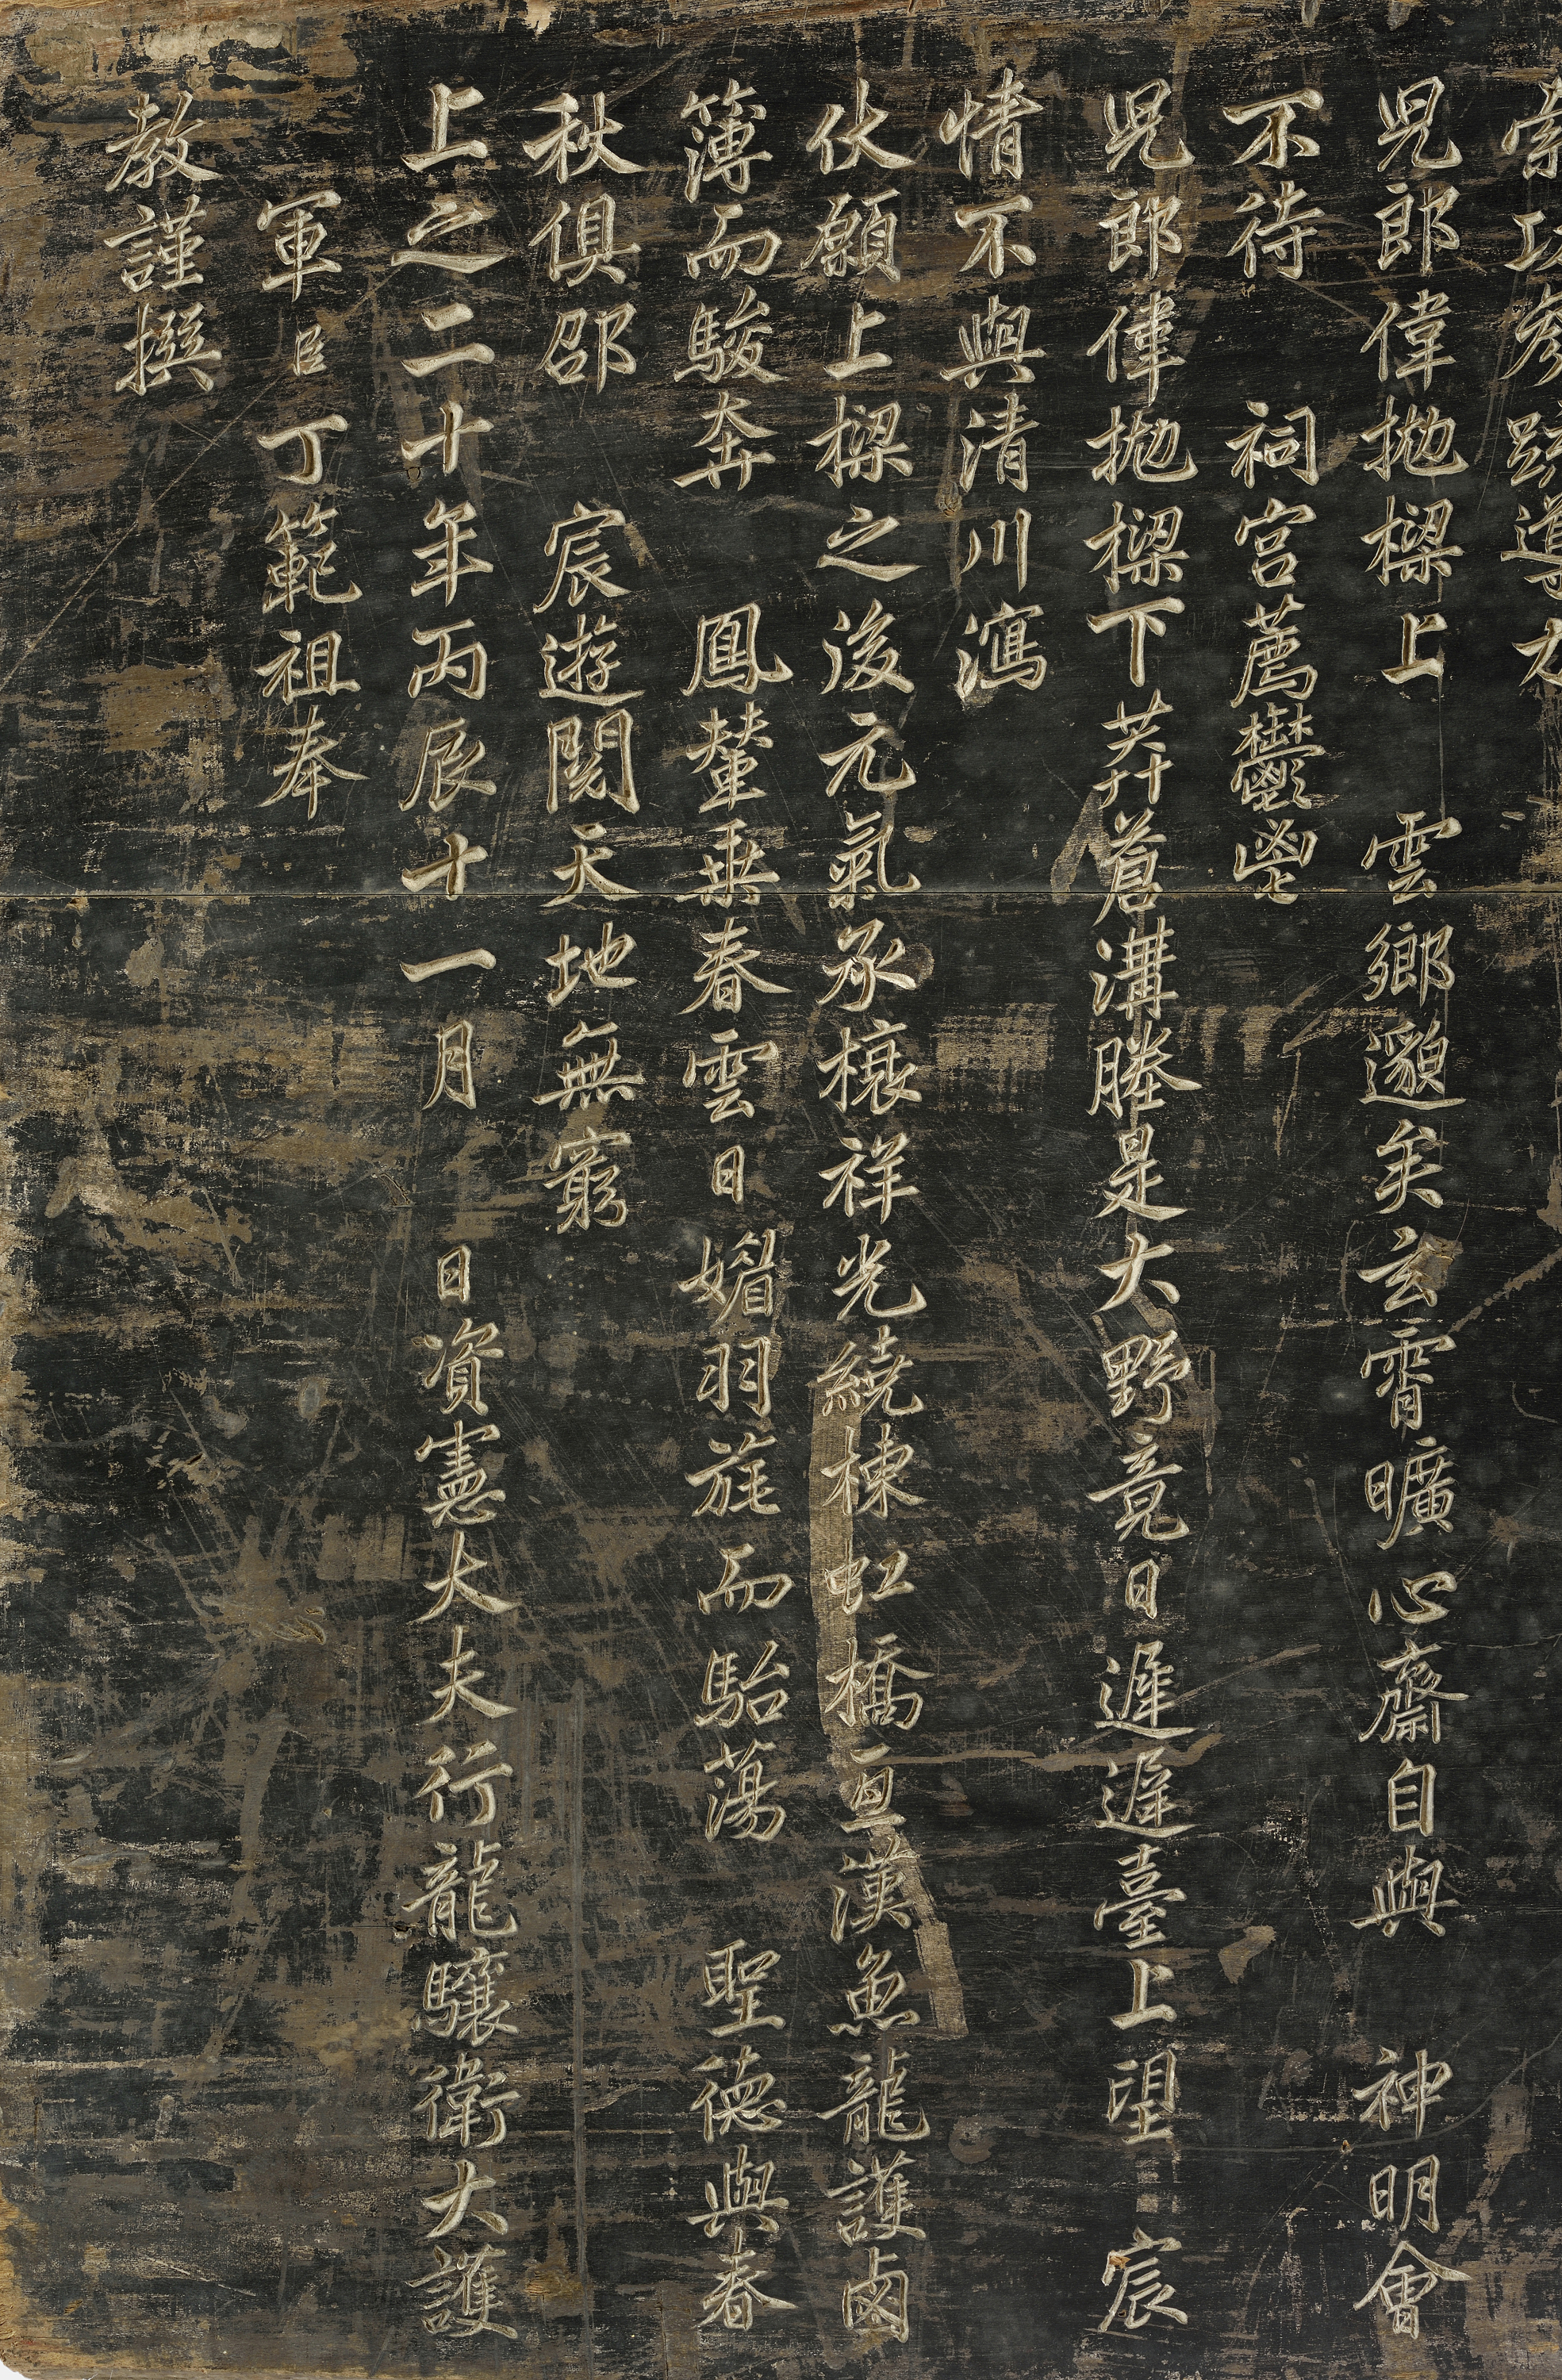 児郎偉拋樑上 雲鄉邈矣玄霄曠心齋自與 神明會
不待 祠宮薦鬱鬯
児郎偉拋樑下莽蒼溝塍是大野竟日遲遲臺上望 宸
情不與清川瀉
伏願上樑之後元氣承榱祥光繞棟虹橋亘漢魚龍護鹵
簿而駿奔 鳳輦乘春雲日媚羽旄而駘蕩 聖德與春
秋俱邵 宸遊閱天地無窮
上之二十年丙辰十一月 日資憲大夫行龍驤衛大護
軍臣丁範祖奉
教謹撰